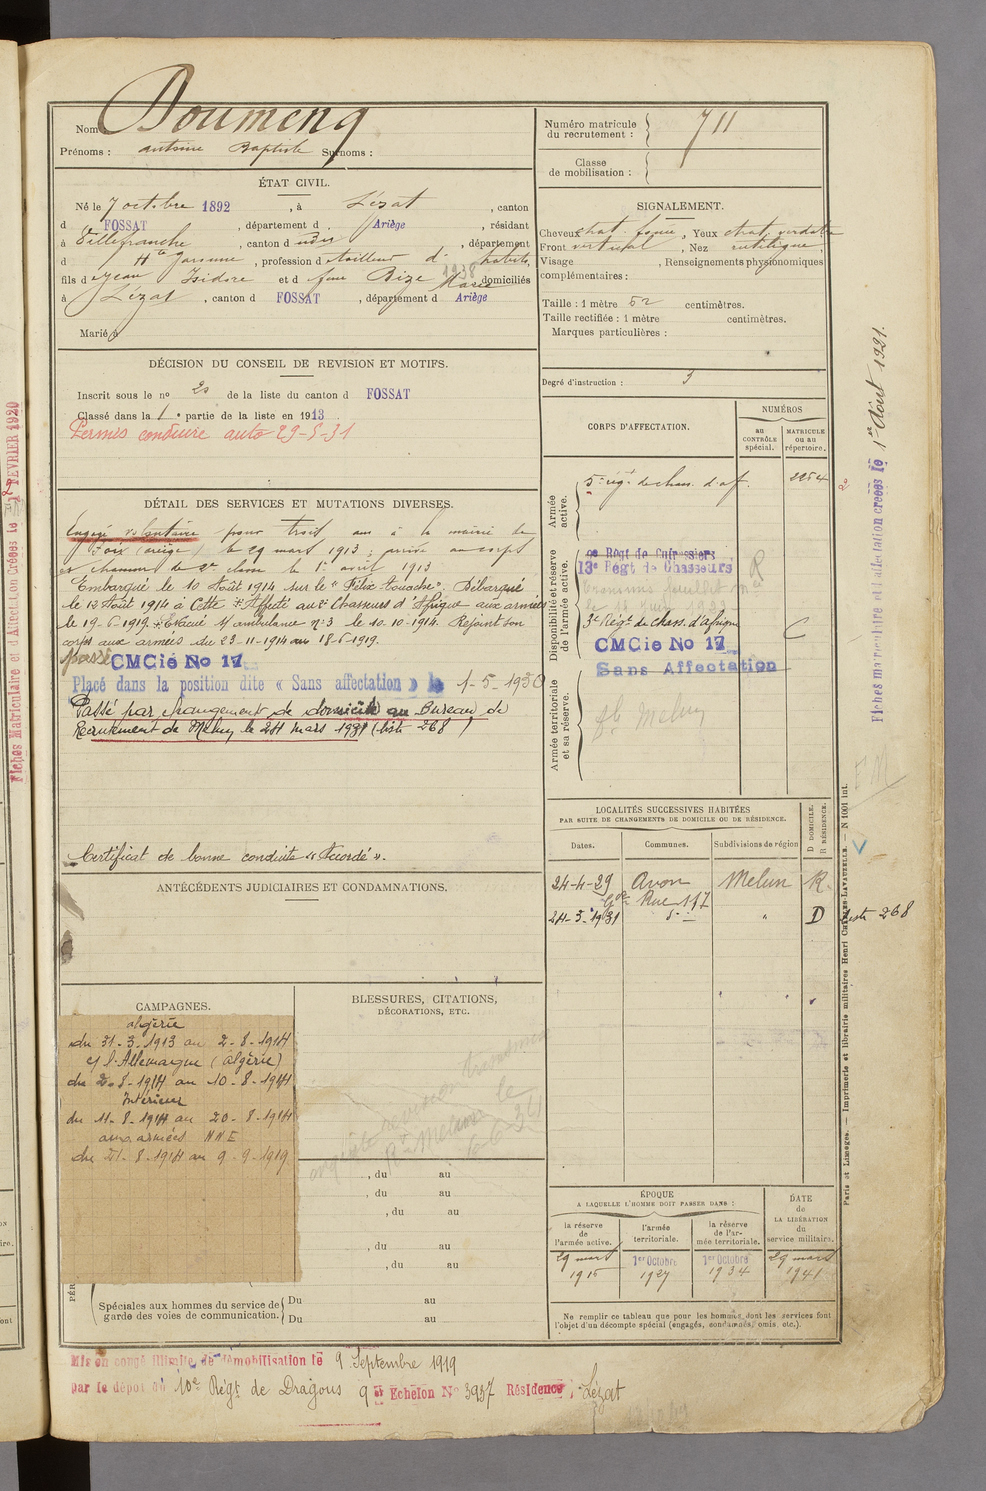 Nom Doumeng
Prénoms : Antoine Baptiste Surnoms :
Numéro matricule du recrutement : 711
Classe de mobilisation :
ÉTAT CIVIL.
Né le 7 octobre 1892, à Lézat, canton
d FOSSAT, département d Ariège, résidant
à Villefranche, canton d udis, département
d Hte Garonne, profession d tailleur d'habits
fils d Jean Isidore et d feue Bize Marie domiciliés
à Lézat, canton d FOSSAT, département d Ariège
Marié à
SIGNALEMENT.
Cheveux chat. foncé, Yeux chat. verdatre
Front vertical, Nez rectiligne
Visage , Renseignements physionomiques
complémentaires :
Taille : 1 mètre 52 centimètres.
Taille rectifiée : 1 mètre centimètres.
Marques particulières :
Degré d'instruction : 3
DÉCISION DU CONSEIL DE REVISION ET MOTIFS.
Inscrit sous le no 20 de la liste du canton d FOSSAT
Classé dans la 1e partie de la liste en 1913
Permis conduire auto 29-5-31
DÉTAIL DES SERVICES ET MUTATIONS DIVERSES.
Engagé volontaire pour trois ans à la mairie de
Foix (Ariège) le 29 mars 1913 ; arrivé au corps
et chasseur de 2e classe le 1er avril 1913
Embarqué le 10 Août 1914 sur le "Félix Touache". Débarqué
le 12 Août 1914 à Cette. Affecté au 2e Chasseurs d'Afrique aux armées
le 19-6-1919. Evacué s/ ambulance no 3 le 10.10.1914. Rejoint son
corps aux armées du 23-11-1914 au 18-6-1919.
passé CMCié No 17
Placé dans la position dite « Sans affectation » le 1-5-1930
Passé par changement de domicile au Bureau de
Recrutement de Melun le 24 mars 1931 (liste 268)
Certificat de bonne conduite « Accordé ».
CORPS D'AFFECTATION.
NUMÉROS
au CONTRÔLE spécial.
MATRICULE ou au répertoire.
Armée active.
5e régt de chass. d'af. 2254
Disponibilité et réserve de l'armée active.
9e Régt de Cuirassiers
13e Régt de Chasseurs R
3e Régt de chass. d'afrique C
CMCié No 17
Sans Affectation
Armée territoriale et sa réserve.
Melun
LOCALITÉS SUCCESSIVES HABITÉES
PAR SUITE DE CHANGEMENTS DE DOMICILE OU DE RÉSIDENCE.
Dates. Communes. Subdivisions de région D DOMICILE. R RÉSIDENCE.
24-4-29 Avon Melun R.
Gde Rue 147
24-3-1931 d° " D liste 268
ANTÉCÉDENTS JUDICIAIRES ET CONDAMNATIONS.
CAMPAGNES.
algérie
du 31-3-1913 au 2-8-1914
c/ l'Allemagne (algérie)
du 2-8-1914 au 10-8-1914
Intérieur
du 11-8-1914 au 20-8-1914
aux armées N N E
du 21-8-1914 au 9-9-1919
BLESSURES, CITATIONS,
DÉCORATIONS, ETC.
R. Melun le
6-6-34
, du au
, du au
, du au
, du au
, du au
PÉR
Spéciales aux hommes du service de garde des voies de communication. Du au
Du au
ÉPOQUE
A LAQUELLE L'HOMME DOIT PASSER DANS :
la réserve de l'armée active.
l'armée territoriale.
la réserve de l'armée territoriale.
DATE de LA LIBÉRATION du service militaire.
29 mars 1916
1er Octobre 1927
1er Octobre 1934
29 mars 1941
Ne remplir ce tableau que pour les hommes dont les services font
l'objet d'un décompte spécial (engagés, condamnés, omis, etc.).
Mis en congé illimité de démobilisation le 9 Septembre 1919
par le dépôt du 10e Régt de Dragons 9 er Echelon No 3937 Résidence : Lézat
Fiches Matriculaire et d'Affectation créées le 1 FEVRIER 1920
Fiches matriculaire et affectation créées le 1er Août 1921.
Paris et Limoges. — Imprimerie et librairie militaires Henri CHARLES-LAVAUZELLE. — N 1001 int.